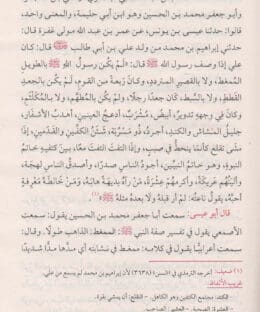 وأبو جعفر محمد بن الحسين وهو ابن أبي حليمة، والمعنى واحد،
قالوا: حدثنا عيسى بن يونس، عن عمر بن عبد الله مولى غفرة قال:
حدثني إبراهيم بن محمد من ولد علي بن أبي طالب قال: كان
علي إذا وصف رسول الله ﷺ قال: «لم يكن رسول الله ﷺ بالطويل
الممغط، ولا بالقصير المتردد، وكان ربعة من القوم، لم يكن بالجعد
القطط، ولا بالسبط، كان جعدا رجلا، ولم يكن بالمطهم، ولا بالمكلثم،
وكان في وجهه تدوير، أبيض، مشرب، أدعج العينين، أهدب الأشفار،
جليل المشاش والكتد، أجرد، ذو مسربة، شثن الكفين والقدمين، إذا
مشى تقلع كأنما ينحط في صبب، وإذا التفت التفت معا، بين كتفيه خاتم
النبوة، وهو خاتم النبيين، أجود الناس صدرا، وأصدق الناس لهجة،
وألينهم عريكة، وأكرمهم عشرة، من رآه بديهة هابه، ومن خالطه معرفة
أحبه، يقول ناعته: لم أر قبله ولا بعده مثله ﷺ»(١).
قال أبو عيسى: سمعت أبا جعفر محمد بن الحسين يقول: سمعت
الأصمعي يقول في تفسير صفة النبي ﷺ: الممغط: الذاهب طولا. وقال:
سمعت أعرابيا يقول في كلامه: تمغط في نشابته أي مدها مدا شديدا
(١) ضعيف: أخرجه الترمذي في السنن (٣٦٣٨) لأن إبراهيم بن محمد لم يسمع من علي.
غريب الألفاظ:
- الكتد: مجتمع الكتفين وهو الكاهل. - التقلع: أن يمشي بقوة.
- العشرة: الصحبة - العشير: الصاحب.